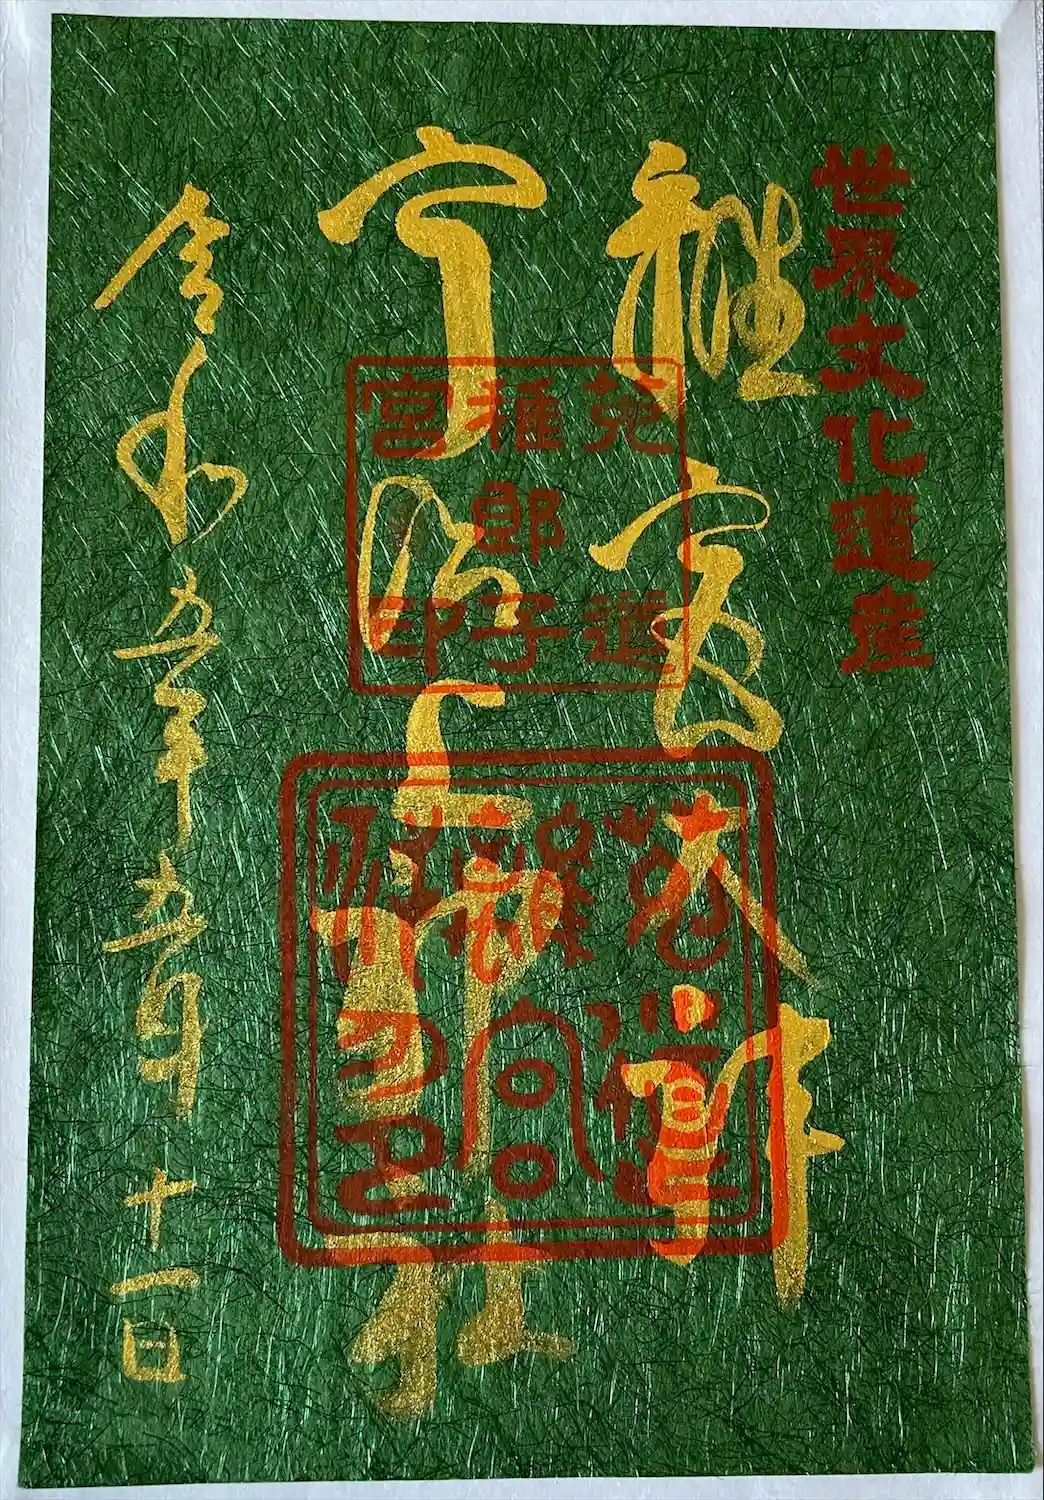 世界文化遺産
離宮大神
宇治上神社
令和五年九月十一日
菟道
稚郎子
宮印